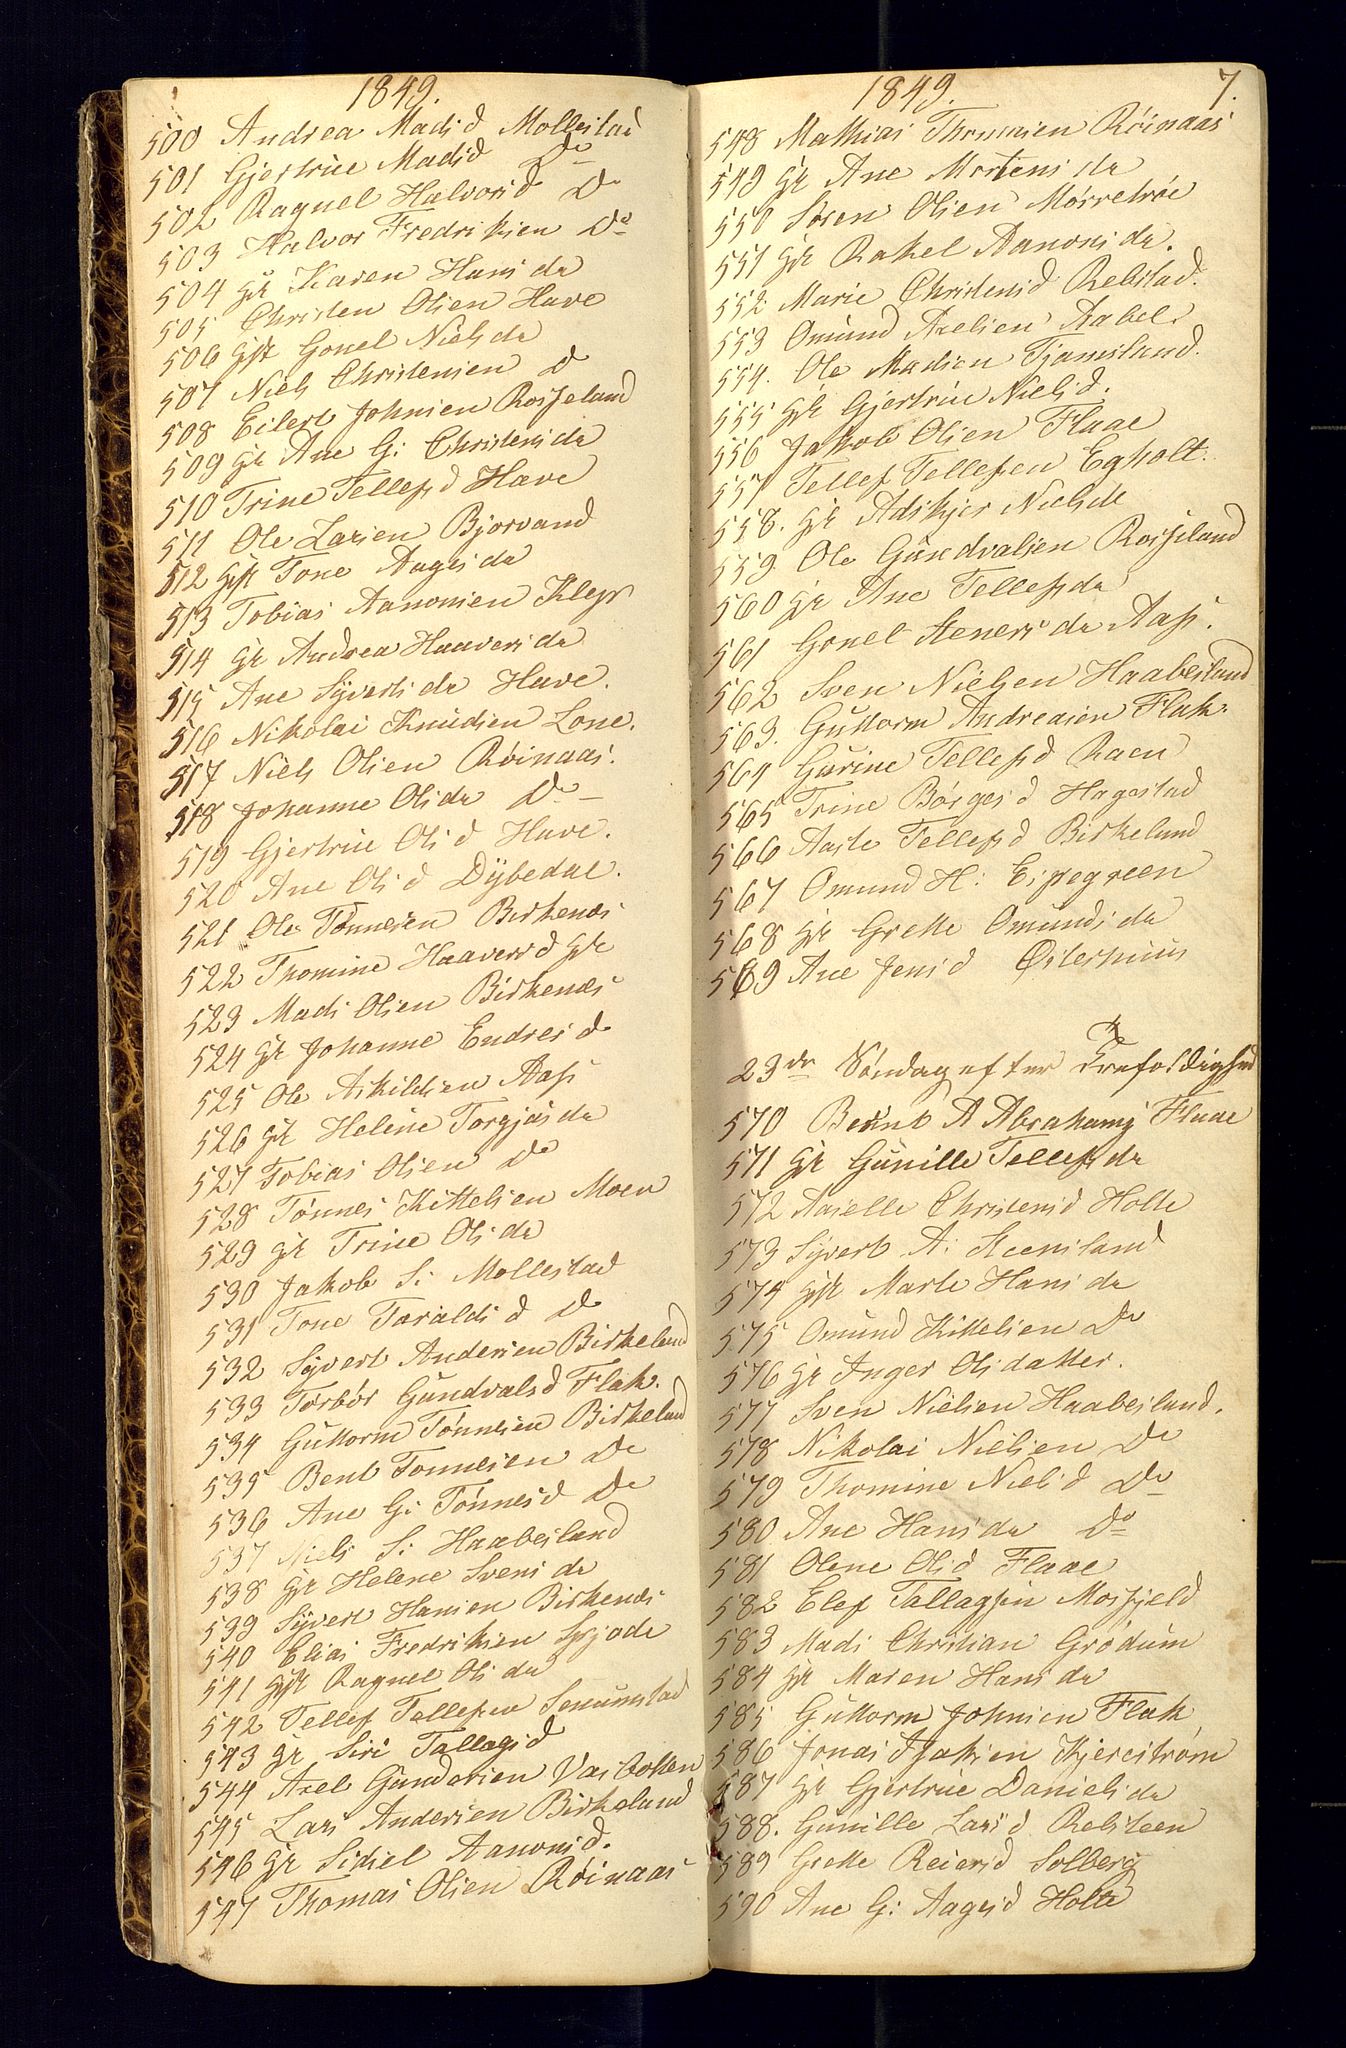 1849.
500 Andrea Mads d Mollestad
501 Gjertrue Madsd Do
502 Raguel Halvorsd Do
503 Halvor Fredriksen Do
504 gk Karen Hans da
505 Christen Olsen Have
506 gk Gonel Niels da
507 Niels Christensen D
508 Eilert Johnsen Rosseland
509 gk Ane G: Christens da
510 Trine Tellefs d Have
511 Ole Larsen Bjorvand
512 gk Tone Aages da
513 Tobias Aanonsen Klep
514 gk Andrea Haavers da
515 Ane Syverts da Have.
516 Nikolai Knudsen Lone.
517 Niels Olsen Röinaas.
518 Johanne Olsda Do
519 Gjertrue Ols d Have.
520 Ane Ols d Dybedal.
521 Ole Tönnesen Birkenæs
522 Thomine Haaversd gk
523 Mads Olsen Birkenæs
524 gk Johanne Endres d
525 Ole Askildsen Aas
526 gk Helene Torgjus da
527 Tobias Olsen Do
528 Tönnes Kittelsen Moen
529 gk Trine Ols da
530 Jakob S: Mollestad
531 Tone Taralds d Do
532 Syvert Andersen Birkeland
533 Torbör Gundvalsd Flak.
534 Guttorm Tönnesen Birkeland
535 Bent Tonnesen Do
536 Ane G: Tönnesd Do
537 Niels S: Haabesland
538 gk Helene Svens da
539 Syvert Hansen Birkenæs
540 Elias Fredriksen
541 gk Raguel Ols da
542 Tellef Tellefsen Senumstad
543 gk Siri Tallagsd
544 Axel Gundersen Vasbotten
545 Lars Andersen Birkeland
546 gk Sidsel Aanonsd.
547 Thomas Olsen Röinaas
1849. 7.
548 Mathias Thomasen Röinaas
549 gk Ane Mortens da
550 Sören Olsen Mörretröe
551 gk Rakel Aanons da.
552 Marie Christensd Relstad.
553 Omund Axelsen Aabel.
554. Ole Madsen Tjomsland.
555 gk Gjertrue Nielsd.
556 Jakob Olsen Flaae
557 Tellef Tellefsen Egholt.
558. gk Adskjer Nielsda
559 Ole Gundvalsen Rosseland
560 gk Ane Tellefsda
561 Gonel Steners da Aas.
562 Sven Nielsen Haabesland
563. Guttorm Andreasen Flak.
564 Gurine Tellefsd Raen
565 Trine Börges d Hagestad
566 Aaste Tellefsd Birkeland
567 Omund H: Espegreen
568 gk Grette Omunds da
569 Ane Jensd Österhuus
23de Söndag efter Trefoldighed
570 Bernt A Abrahams Flaae
571 gk Gunille Tellefsda
572 Aaselle Christensd Holte
573 Syvert A: Steensland
574 gk Marte Hans da
575 Omund Kittelsen Do
576 gk Inger Olsdatter.
577 Sven Nielsen Haabesland.
578 Nikolai Nielsen Do
579 Thomine Nielsd Do
580 Ane Hansda Do
581 Olene Olsd Flaae
582 Elef Tallagsen Mosfjeld
583 Mads Christian Grödum
584 gk Maren Hans da
585 Guttorm Johnsen Flak
586 Jonas Kjerestrøm
587 gk Gjertrue Daniels da
588. Gunille Larsd Relsteen
589 Grette Reiersd Solberg
590 Ane G: Aagesd Holte